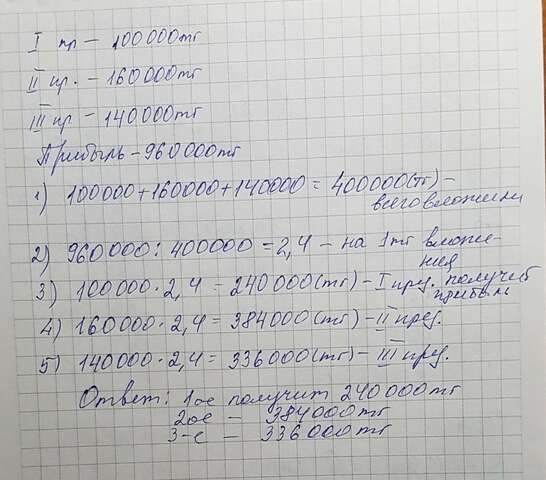 I пр – 100000тг
II пр. – 160000тг
III пр – 140000тг
Прибыль – 960000тг
1) 100000+160000+140000 = 400000(тг) –
всего вложили
2) 960000 : 400000 = 2,4 – на 1тг вложе-
ния
3) 100000 · 2,4 = 240000(тг) – I пред. получит
прибыли
4) 160000 · 2,4 = 384000(тг) – II пред.
5) 140000 · 2,4 = 336000(тг) – III пред.
Ответ: 1ое получит 240000тг
2ое – 384000тг
3-е – 336000тг